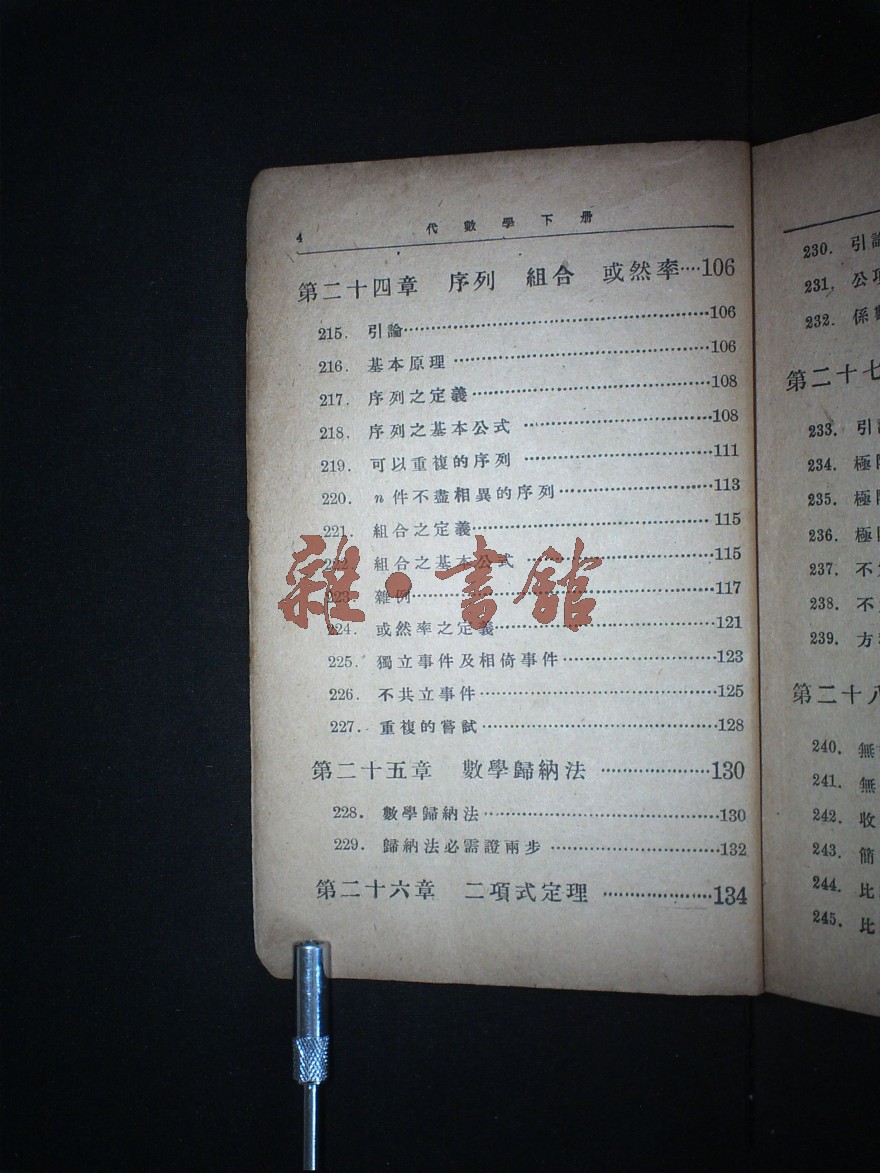 4 代數學下册
第二十四章 序列 組合 或然率····106
215. 引論····106
216. 基本原理····106
217. 序列之定義····108
218. 序列之基本公式····108
219. 可以重複的序列····111
220. n件不盡相異的序列····113
221. 組合之定義····115
222. 組合之基本公式····115
223. 雜例····117
224. 或然率之定義····121
225. 獨立事件及相倚事件····123
226. 不共立事件····125
227. 重複的嘗試····128
第二十五章 數學歸納法····130
228. 數學歸納法····130
229. 歸納法必需證兩步····132
第二十六章 二項式定理····134
雜·書館
230. 引論
231. 公項
232. 係數
第二十七
233. 引論
234. 極限
235. 極限
236. 極限
237. 不
238. 不
239. 方
第二十八
240. 無
241. 無
242. 收
243. 簡
244. 比
245. 比